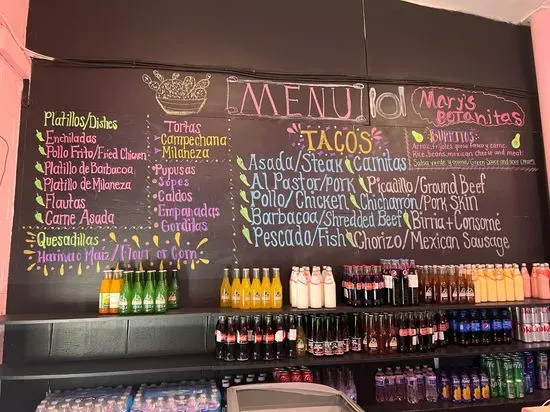 MENU
Mary's
Botanitas
Platillos/Dishes
Enchiladas
Pollo Frito/Fried Chicken
Platillo de Barbacoa
Platillo de Milaneza
Flautas
Carne Asada
Quesadillas
Harina o Maiz/Flour or Corn
Tortas
Campechana
Milaneza
Pupusas
Sopes
Caldos
Empanadas
Gorditas
TACOS
Asada/Steak
Al Pastor/Pork
Pollo/Chicken
Barbacoa/Shredded Beef
Pescado/Fish
Carnitas
Picadillo/Ground Beef
Chicharrón/Pork Skin
Birria+Consomé
Chorizo/Mexican Sausage
BURRITOS:
Arroz, frijoles, queso fresco y carne.
Rice, beans, mexican cheese and meat.
Salsa verde y crema/Green Sauce and sour cream